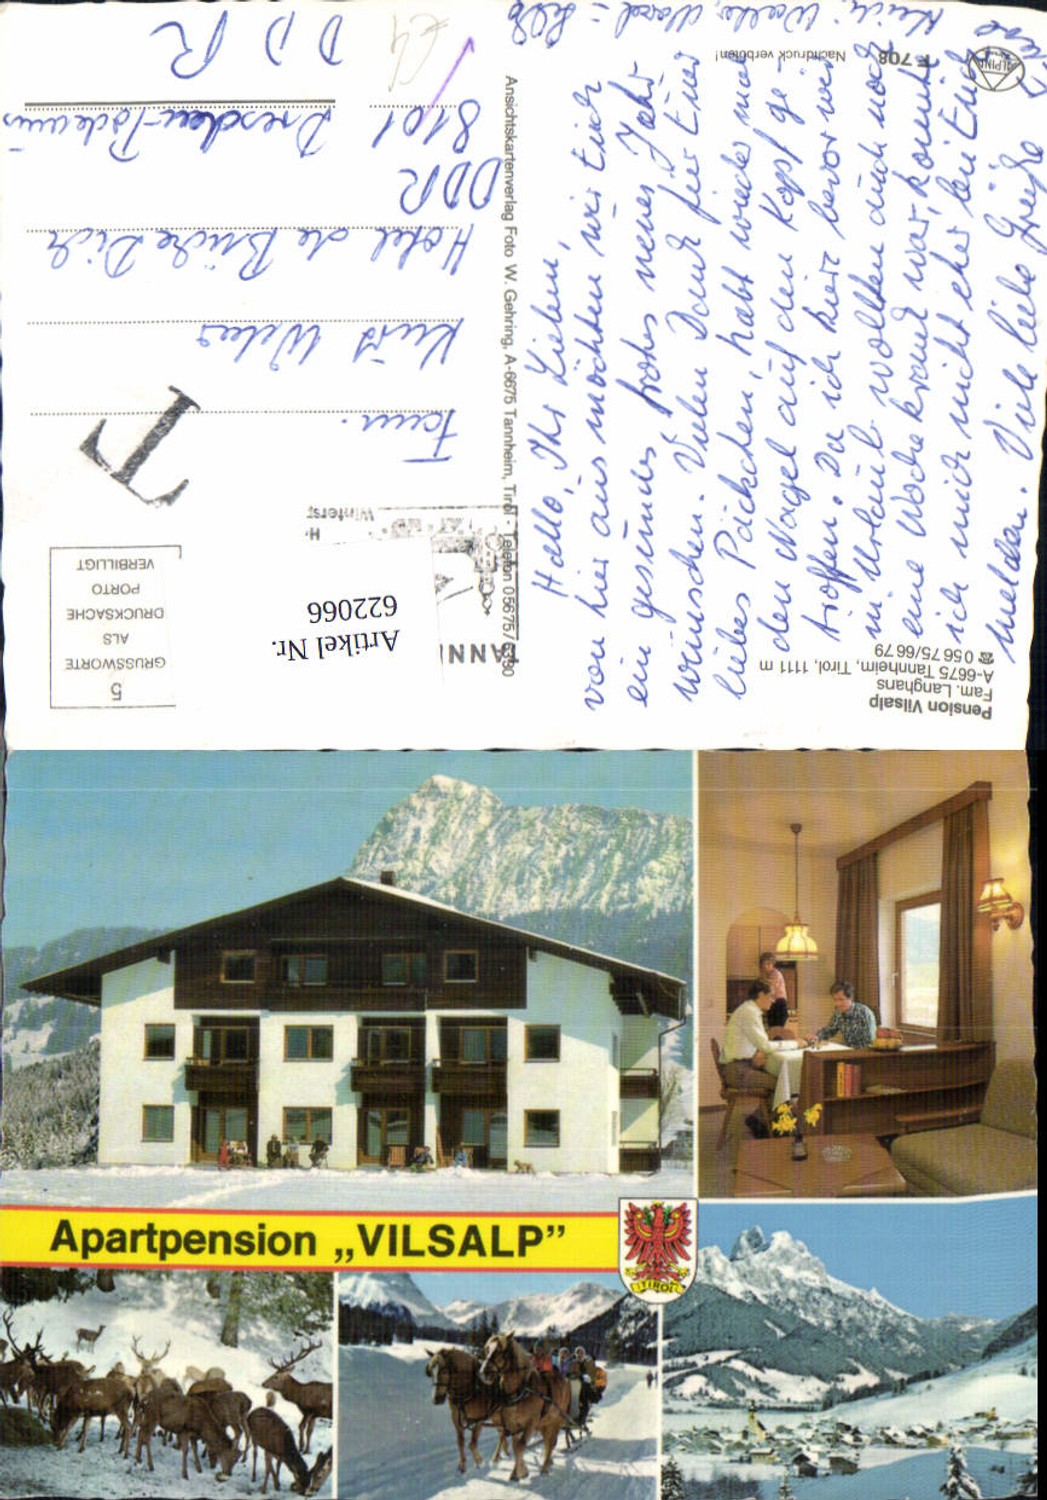 Pension Vilsalp
Fam. Langhans
A-6675 Tannheim, Tirol, 1111 m
☎ 0 56 75/66 79
Hallo, Ihr Lieben,
von hier aus möchten wir Euch
ein gesundes frohes neues Jahr
wünschen. Vielen Dank für Euer
liebes Päckchen, habt wieder mal
den Nagel auf den Kopf ge-
troffen. Da ich hier bevor wir
in Urlaub wollten auch noch
eine Woche krank war, konnte
ich mich nicht eher bei Euch
melden. Viele liebe Grüße
F 708
Nachdruck verboten!
ALPINE
Ansichtskartenverlag Foto W. Gehring, A-6675 Tannheim, Tirol - Telefon 05675/6390
5
GRUSSWORTE
ALS
DRUCKSACHE
PORTO
VERBILLIGT
TANN
Winters
H.
Artikel Nr.
622066
T
Fam.
Kurt Weber
Hotel die Brücke Dich
DDR
8101 Dresden-
DDR
Apartpension „VILSALP”
TIROL